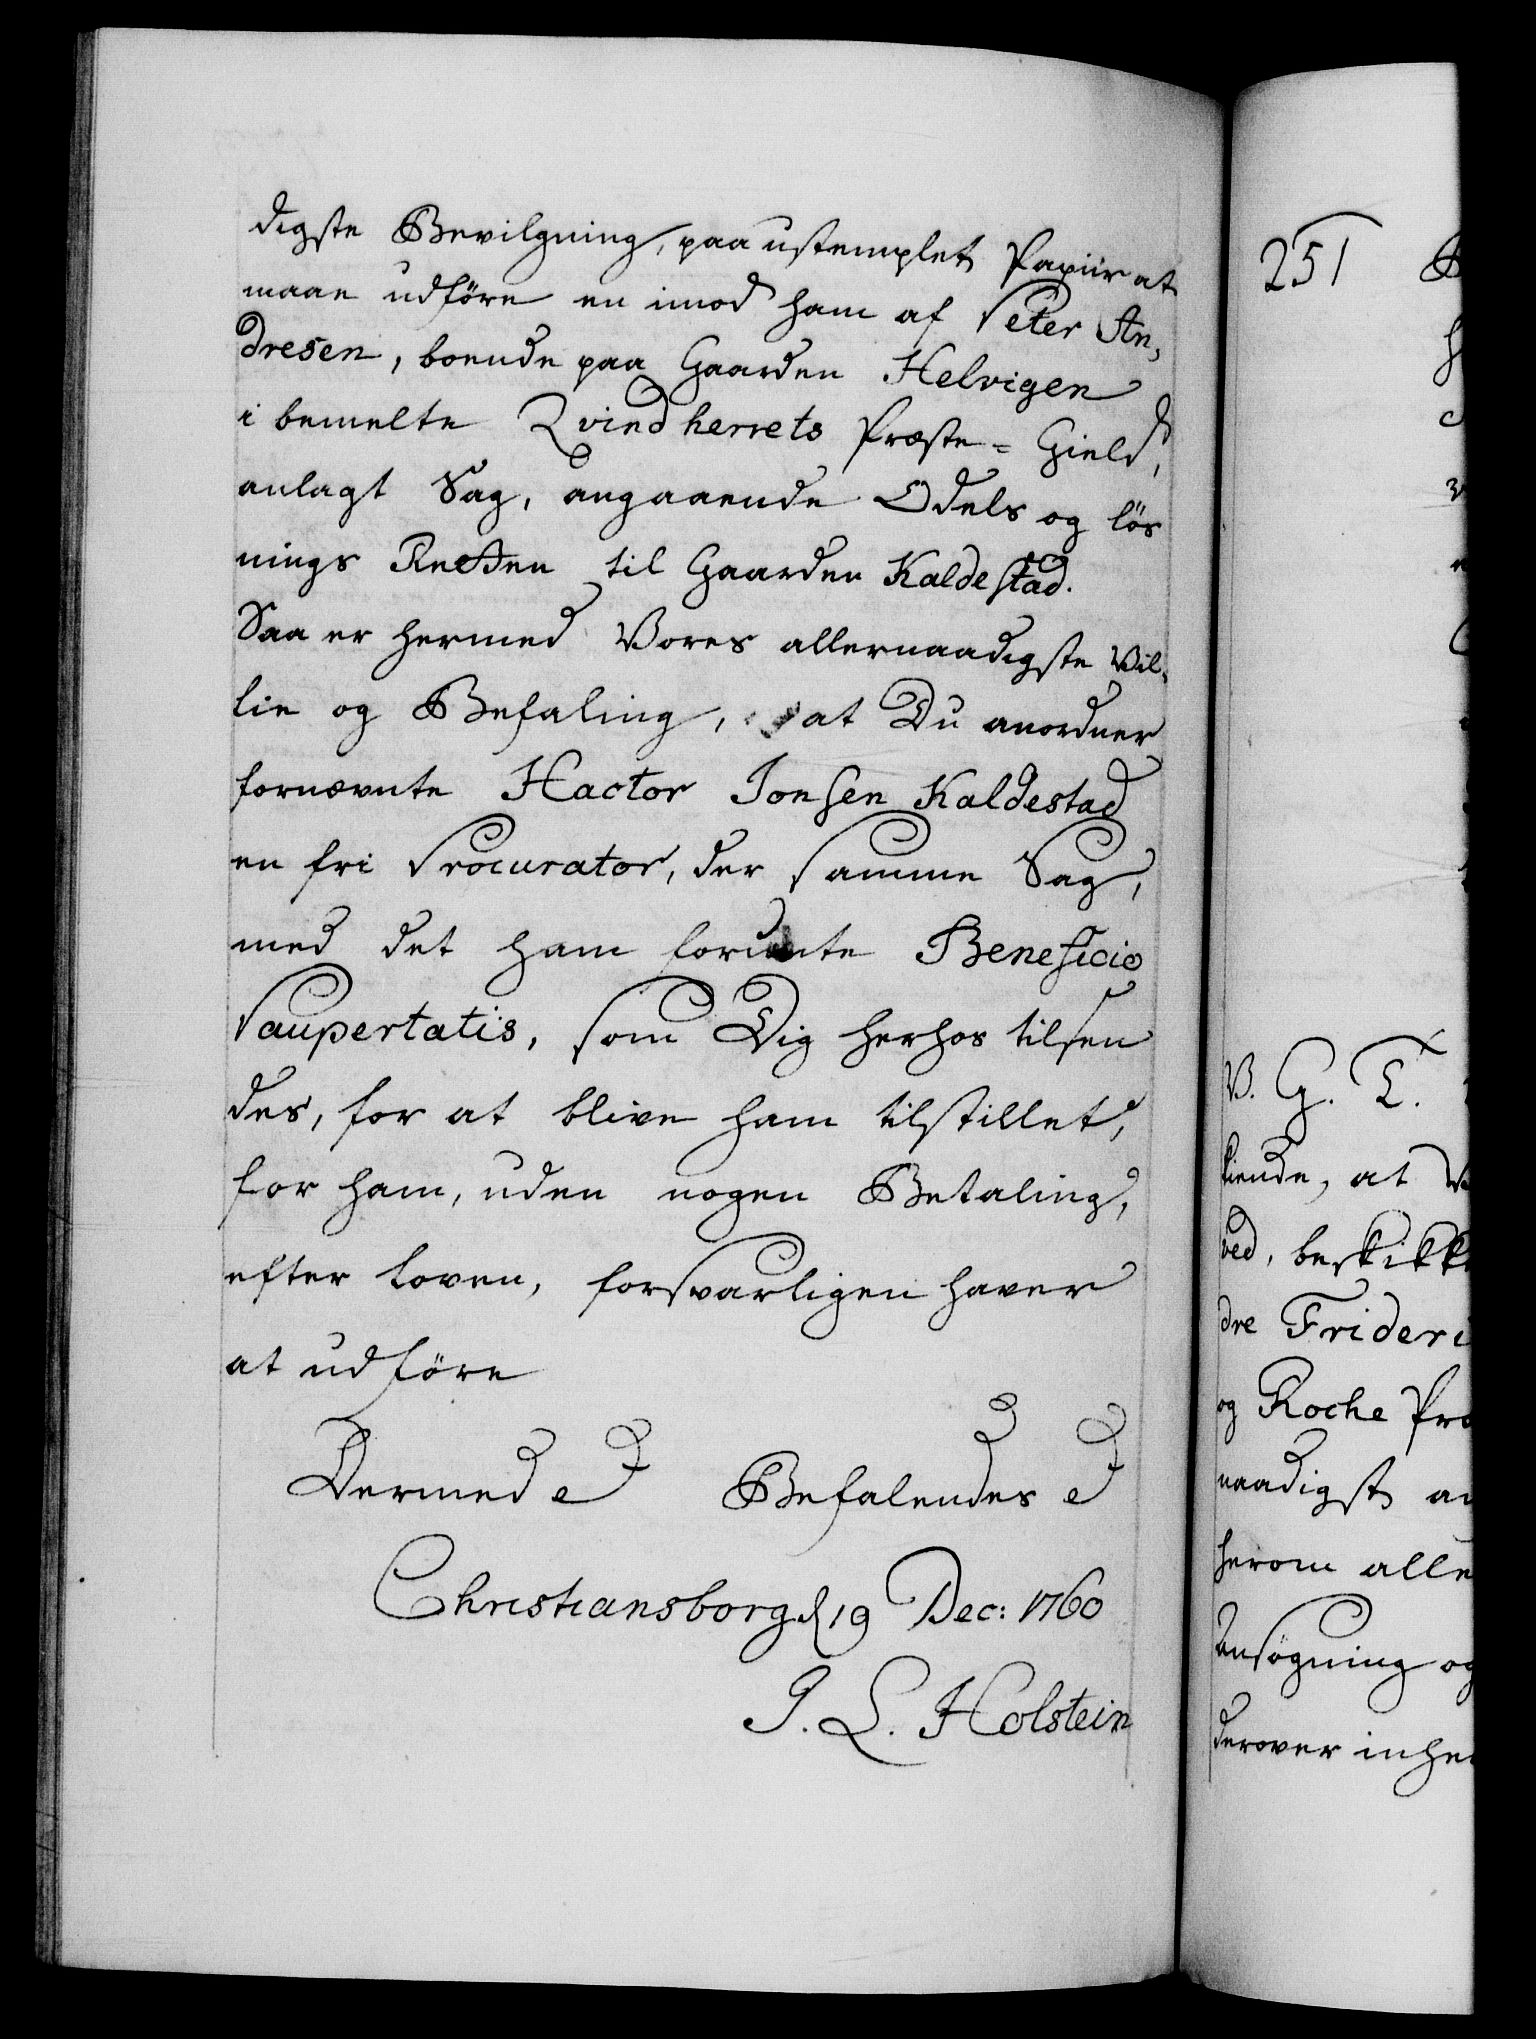 digste Bevilgning, paa ustemplet Papiir at
maae udföre en imod ham af Peter An,
dresen, boende paa Gaarden Helvigen
i bemelte Qvindherrets Præste= Gield,
anlagt Sag, angaaende Odels og lös
nings Retten til Gaarden Kaldestad.
Saa er hermed Vores allernaadigste Vil,
lie og Befaling, at Du anordner
fornævnte Hactor Jonsen Kaldestad
en fri Procurator, der samme Sag,
med det ham forunte Beneficio
Paupertatis, som Dig herhos tilsen
des, for at blive ham tilstillet,
for ham, uden nogen Betaling,
efter Loven, forsvarligen haver
at udföre
Dermed Befalendes
Christiansborg d 19 Dec: 1760
J. L. Holstein
251
V. G. T.
kiende, at
ved, beskikk
dre Frideri
og Roche Pro
naadigst an
herom alle
Ansögning og
derover inhe